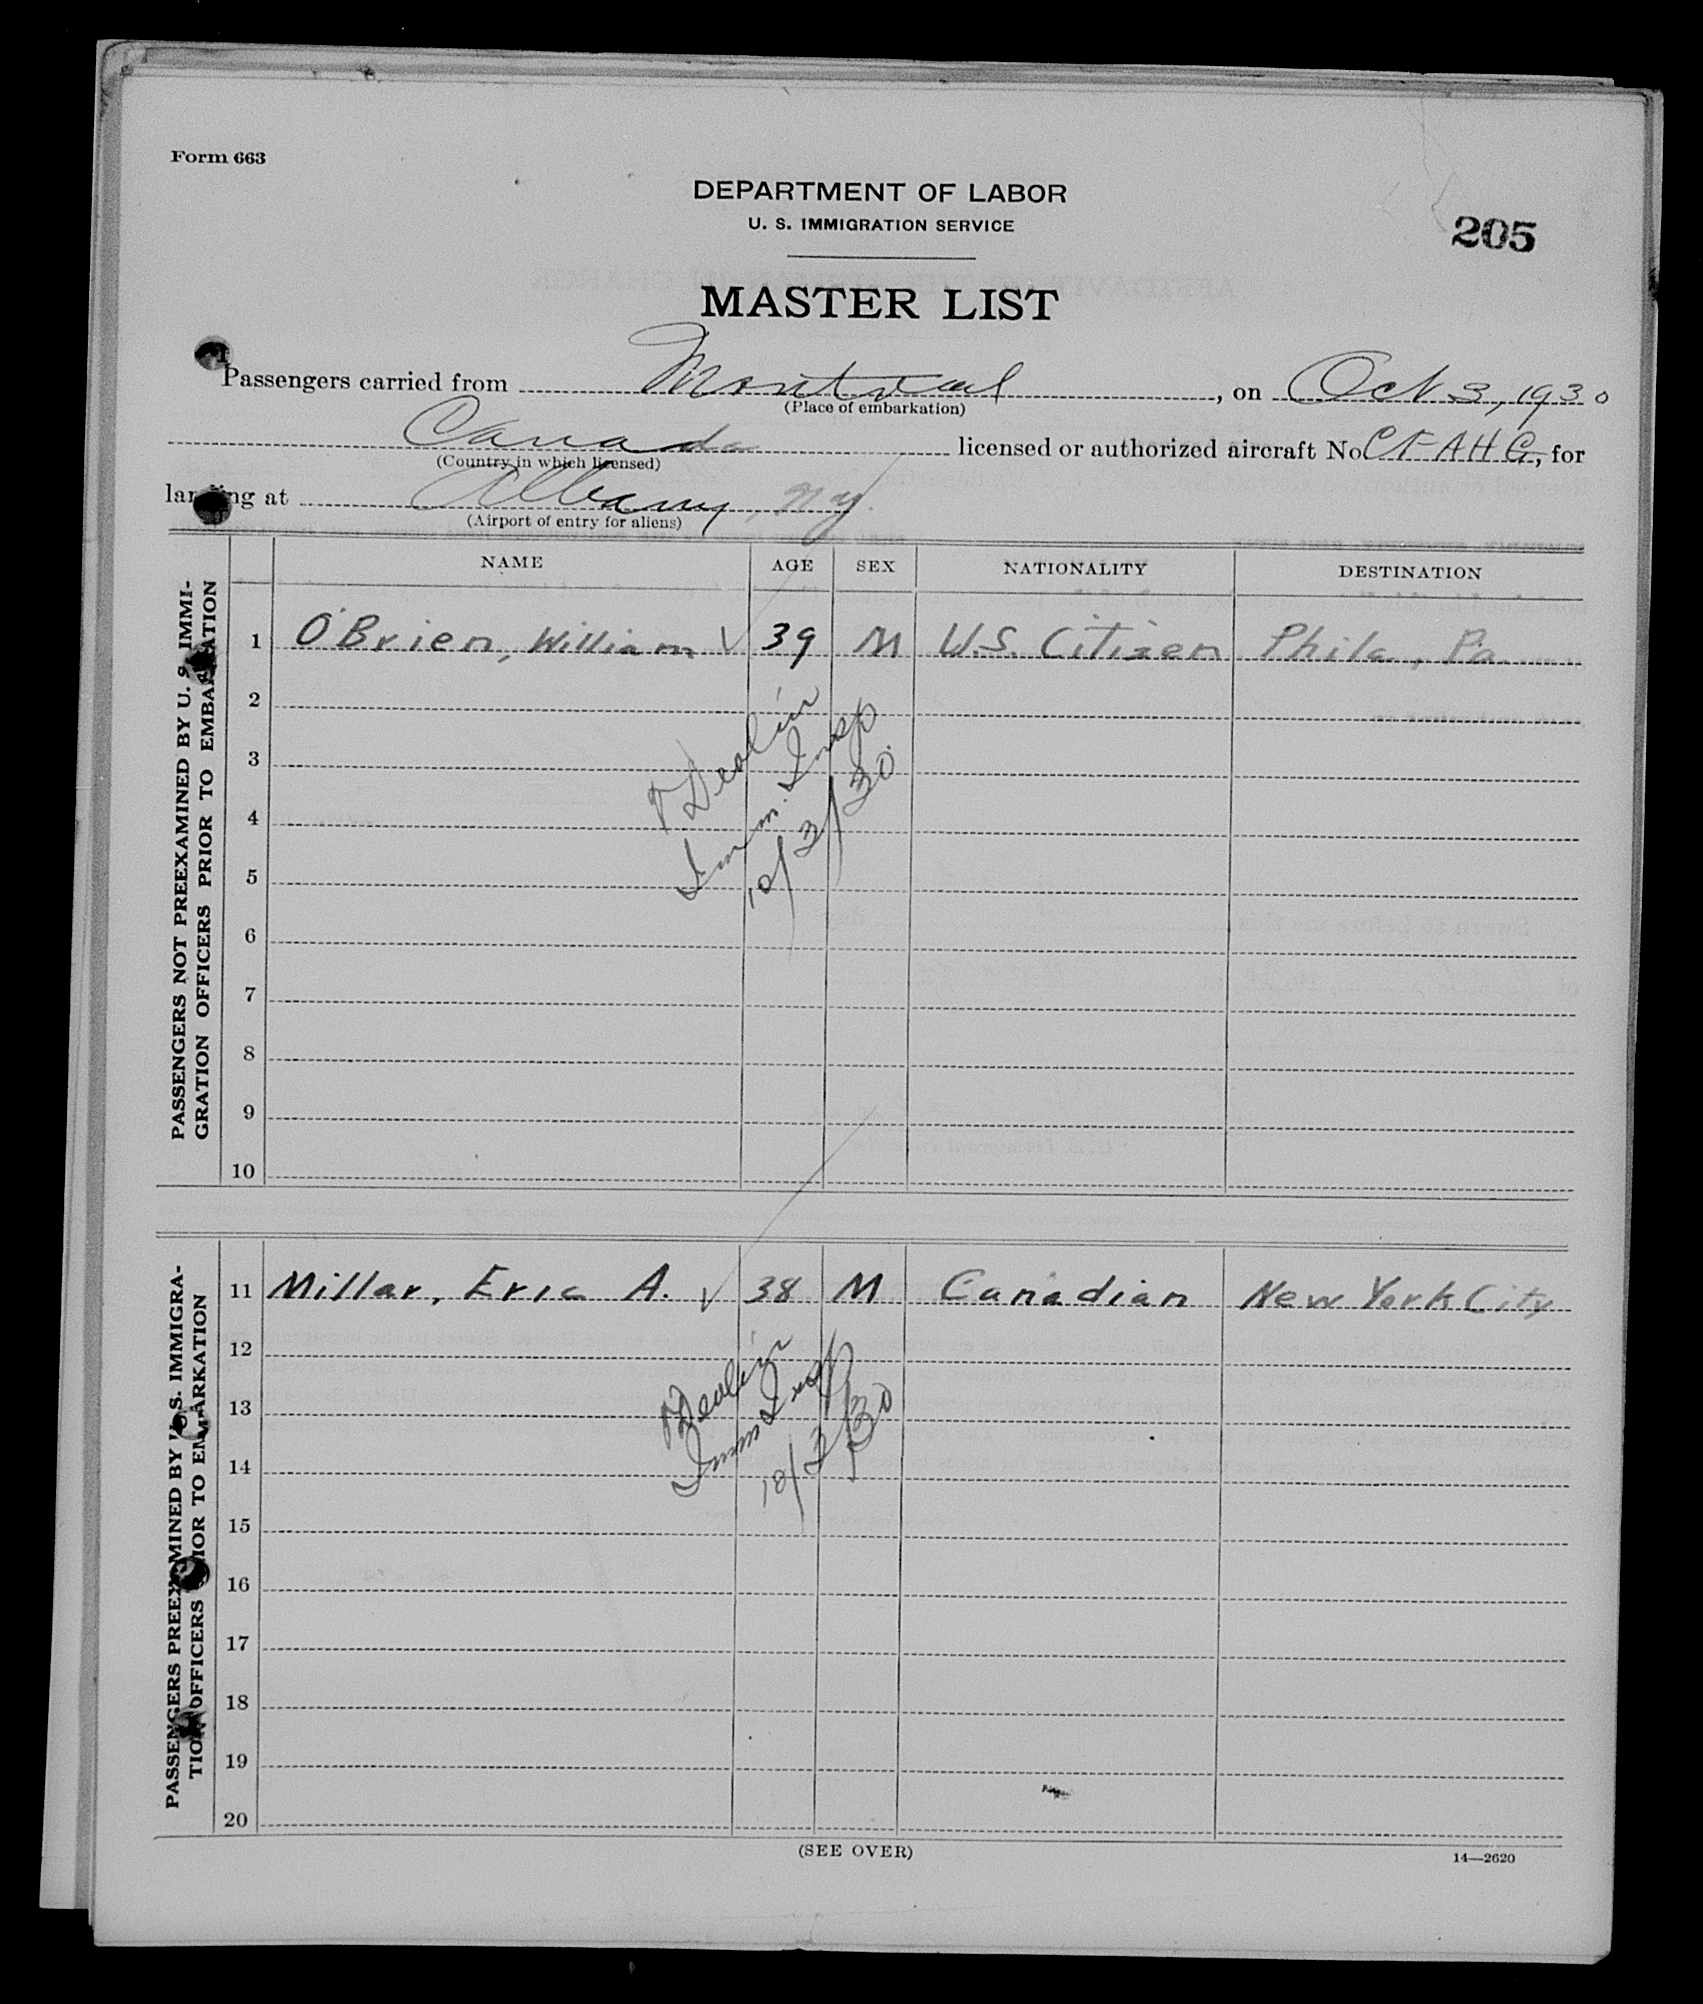 Form 663
DEPARTMENT OF LABOR
U. S. IMMIGRATION SERVICE
205
MASTER LIST
Passengers carried from Montreal, on Oct 3, 1930
(Place of embarkation)
Canada licensed or authorized aircraft No CF-AHG, for
(Country in which licensed)
landing at Albany, N.Y.
(Airport of entry for aliens)
NAME AGE SEX NATIONALITY DESTINATION
PASSENGERS NOT PREEXAMINED BY U. S. IMMI-
GRATION OFFICERS PRIOR TO EMBARKATION
1 O'Brien, William √ 39 M U.S. Citizen Phila, Pa.
2
3
4
5
6
7
8
9
10
Imm. Insp
10/3/30.
PASSENGERS PREEXAMINED BY U. S. IMMIGRA-
TION OFFICERS PRIOR TO EMBARKATION
11 Millar, Eric A. √ 38 M Canadian New York City
12
13
14
15
16
17
18
19
20
Imm Insp
10/3/30
(SEE OVER)
14—2620